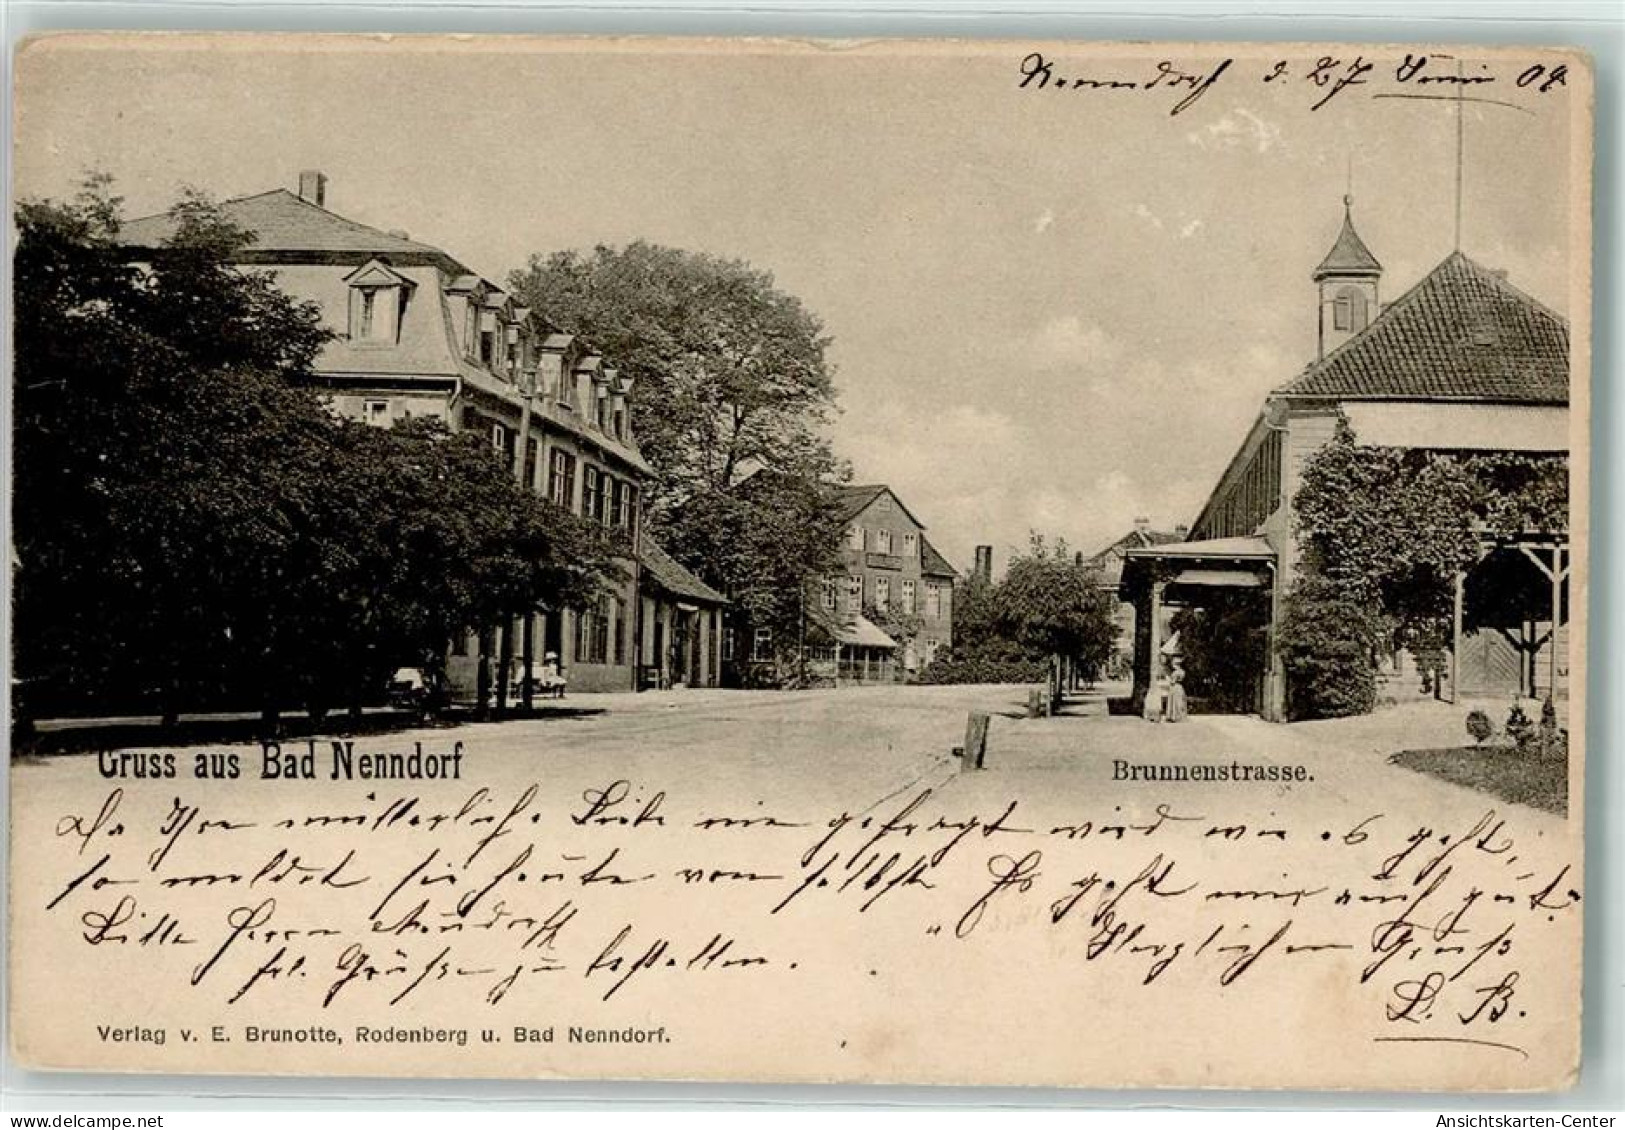 Nenndorf d. 27 Juni 04
Gruss aus Bad Nenndorf
Brunnenstrasse.
Da Ihre mütterliche Liebe nie gefragt wird wie es geht,
so meldet sie heute von selbst Es geht mir auch gut.
Bitte Herrn
frl. Grüße zu bestellen.
Herzlichen Gruß
L. B.
Verlag v. E. Brunotte, Rodenberg u. Bad Nenndorf.
Ansichtskarten-Center